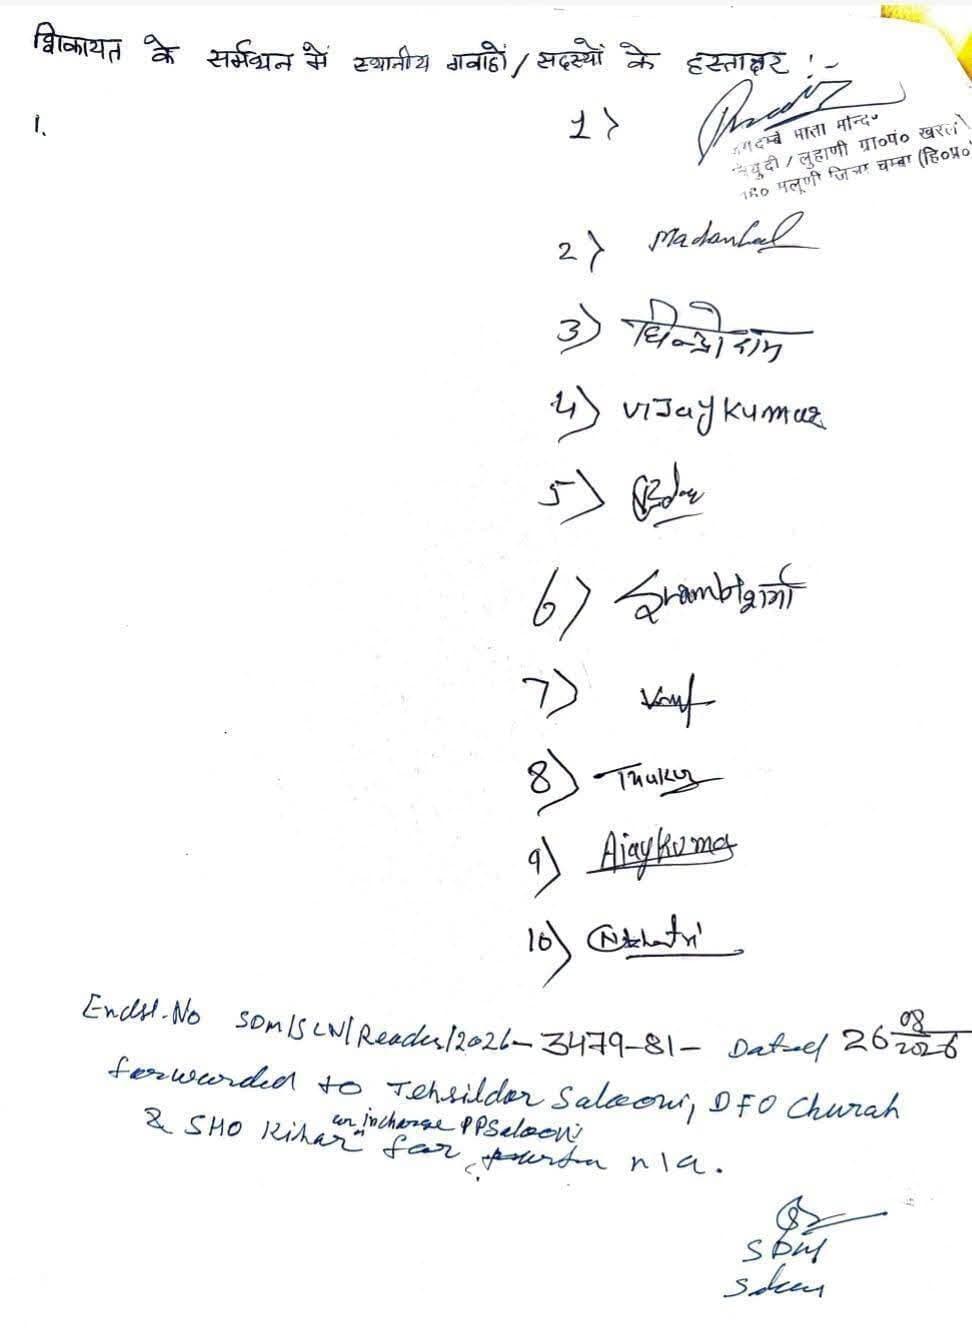 शिकायत के सर्मथन में स्थानीय गवाहों / सदस्यों के हस्ताक्षर :-
1.
1)
माता मन्दि०
/ लुहाणी ग्रा०पं० खरल
सलूणी जिला चम्बा (हि०प्र०)
2) Madanlal
3) राम
4) Vijay Kumar
5)
6)
7)
8) Thakur
9) Ajay Kumar
10) Nkhatri
Endst. No SDM/SLN/Reader/2026-3479-81- Dated 26 08/2026
forwarded to Tehsildar Salooni, DFO Churah
or incharge PP Salooni
& SHO Kihar for n/a.
SDM